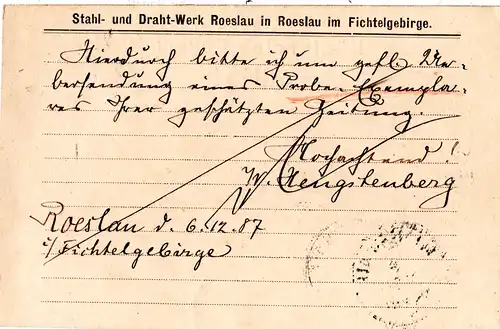 Stahl- und Draht-Werk Roeslau in Roeslau im Fichtelgebirge.
Hierdurch bitte ich um gefl. Ue-
bersendung eines Probe-Exempla-
res Ihrer geschätzten Zeitung.
Hochachtend!
W. Hengstenberg
Roeslau d. 6.12.87
i/Fichtelgebirge